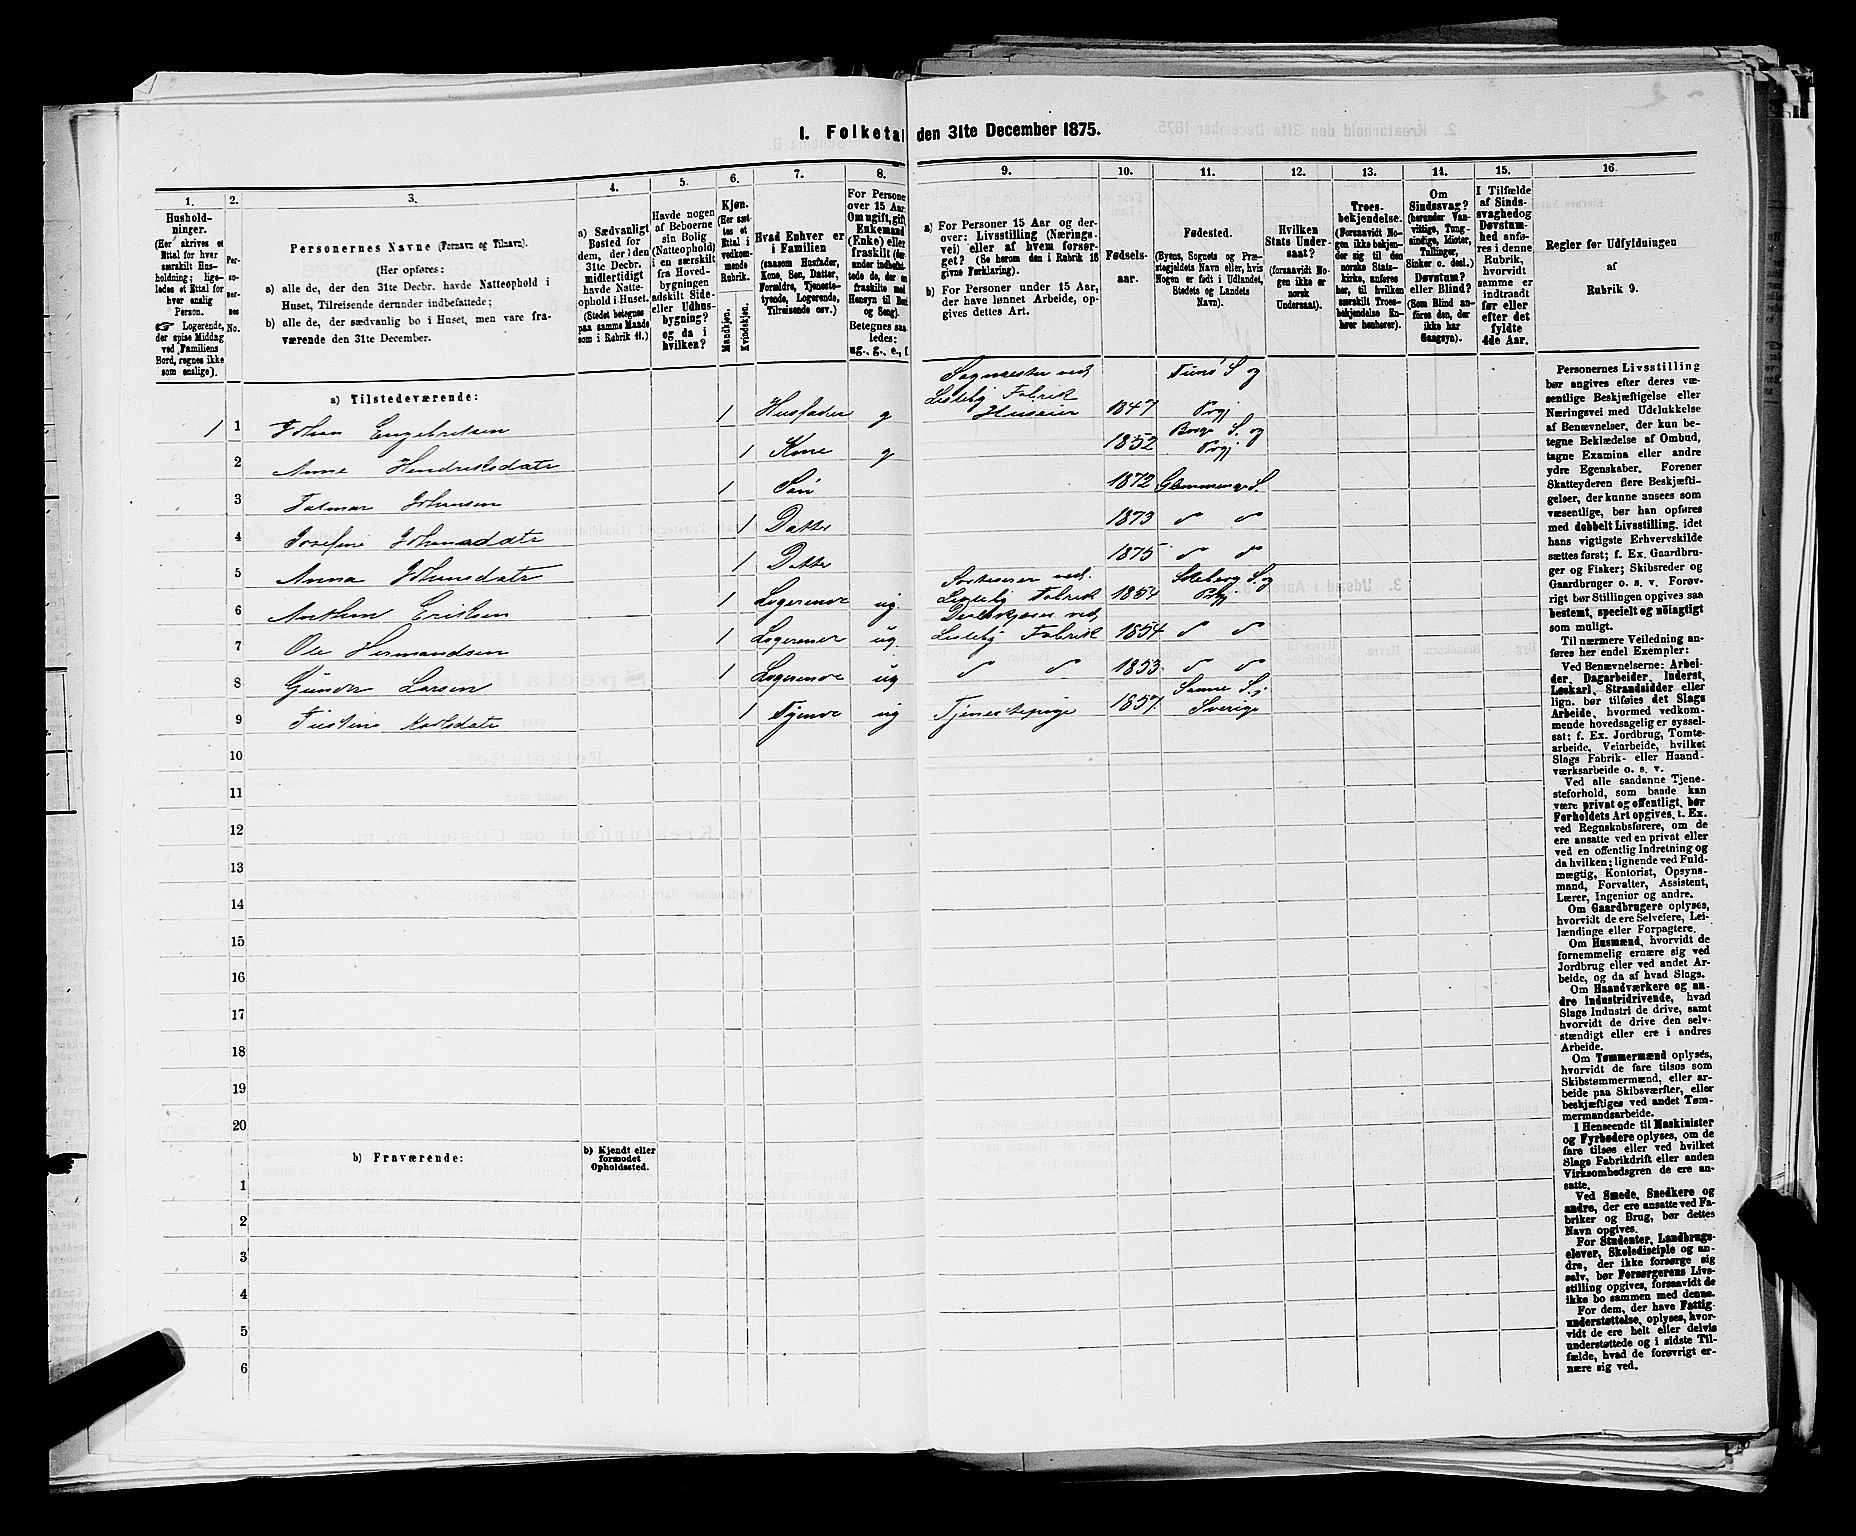 1. Folketal den 31te December 1875.
1.
Hushold-
ninger.
(Her skrives et
Ettal for hver
særskilt Hus-
holdning; lige-
ledes et Ettal for
hver enslig
Person.
☞ Logerende,
der spise Middag
ved Familiens
Bord, regnes ikke
som enslige).
2.
Per-
so-
ner-
nes
No.
3.
Personernes Navne (Fornavn og Tilnavn).
(Her opføres:
a) alle de, der den 31te Decbr. havde Natteophold i
Huset, Tilreisende derunder indbefattede;
b) alle de, der sædvanlig bo i Huset, men vare fra-
værende den 31te December.
4.
a) Sædvanligt
Bosted for
dem, der i den
31te Decbr.
midlertidigt
havde Natte-
ophold i Huset.
(Stedet betegnes
paa samme Maade
som i Rubrik 11.)
5.
Havde nogen
af Beboerne
sin Bolig
(Natteophold)
i en særskilt
fra Hoved-
bygningen
adskilt Side-
eller Udhus-
bygning?
og da i
hvilken?
6.
Kjøn.
(Her sæt-
tes et
Ettal i
vedkom-
mende
Rubrik.
Mandkjøn.
Kvindekjøn.
7.
Hvad Enhver er
i Familien
(saasom Husfader,
Kone, Søn, Datter,
Forældre, Tjeneste-
tyende, Logerende,
Tilreisende osv.)
8.
For Persone
over 15 Aar
Om ugift, gift
Enkemand
(Enke) eller
fraskilt (der-
under indbefat-
tede de, der e
fraskilte med
Hensyn til Bor
og Seng).
Betegnes saa
ledes:
ug., g., e., f
9.
a) For Personer 15 Aar og der-
over: Livsstilling (Nærings-
vei) eller af hvem forsør-
get? (Se herom den i Rubrik 16
givne Forklaring).
b) For Personer under 15 Aar,
der have lønnet Arbeide, op-
gives dettes Art.
10.
Fødsels-
aar.
11.
Fødested.
(Byens, Sognets og Præ-
stegjeldets Navn eller, hvis
Nogen er født i Udlandet,
Stedets og Landets
Navn).
12.
Hvilken
Stats Under-
saat?
(forsaavidt No-
gen ikke er
norsk
Undersaat).
13.
Troes-
bekjendelse.
(Forsaavidt No-
gen ikke bekjen-
der sig til den
norske Stats-
kirke, anføres
her, til hvilken
særskilt Troes-
bekjendelse En-
hver henhører).
14.
Om
Sindssvag?
(herunder Van-
vittige, Tung-
sindige, Idioter,
Tullinger,
Sinker o. desl.)
Døvstum?
eller Blind?
(Som Blind an-
føres den, der
ikke har
Gangsyn).
15.
I Tilfælde
af Sinds-
svaghed og
Døvstum-
hed anfø-
res i denne
Rubrik,
hvorvidt
samme er
indtraadt
før eller
efter det
fyldte
4de Aar.
16.
Regler for Udfyldningen
af
Rubrik 9.
a) Tilstedeværende:
1 1 Johan Engebretsen 1 Husfader g Sagmester ved Lisleby Fabrik Huseier 1847 Tunø S og Prgj
2 Anne Hendriksdatr 1 Kone g 1852 Borge S. og Prgj
3 Johansen 1 Søn 1872 Glemminge S.
4 Josefine Johansdatr 1 Datter 1873 " "
5 Anna Johansdatr 1 Datter 1875 " "
6 Anthon Eriksen 1 Logerende ug. ved Lisleby Fabrik 1854 S. og Prgj
7 Ole Hermandsen 1 Logerende ug. ved Lisleby Fabrik 1854 " "
8 Gunder Larsen 1 Logerende ug " " 1853 " "
9 Karlsdatr 1 Tyende ug Tjenestepige 1857 S. i Sverige
10
11
12
13
14
15
16
17
18
19
20
b) Fraværende:
b) Kjendt eller
formodet
Opholdssted.
1
2
3
4
5
6
Personernes Livsstilling
bør angives efter deres væ-
sentlige Beskjæftigelse eller
Næringsvei med Udelukkelse
af Benævnelser, der kun be-
tegne Beklædelse af Ombud,
tagne Examina eller andre
ydre Egenskaber. Forener
Skatteyderen flere Beskjæfti-
gelser, der kunne ansees som
væsentlige, bør han opføres
med dobbelt Livsstilling, idet
hans vigtigste Erhvervskilde
sættes først; f. Ex. Gaardbru-
ger og Fisker; Skibsreder og
Gaardbruger o. s. v. Forøv-
rigt bør Stillingen opgives saa
bestemt, specielt og nøiagtigt
som muligt.
Til nærmere Veiledning an-
føres her endel Exempler:
Ved Benævnelserne: Arbei-
der, Dagarbeider, Inderst,
Løskarl, Strandsidder eller
lign. bør tilføies det Slags
Arbeide, hvormed vedkom-
mende hovedsagelig er syssel-
sat; f. Ex. Jordbrug, Tomte-
arbeide, Veiarbeide, hvilket
Slags Fabrik- eller Haand-
værksarbeide o. s. v.
Ved alle saadanne Tjene-
steforhold, som baade kan
være privat og offentligt, bør
Forholdets Art opgives, t. Ex.
ved Regnskabsførere, om de
ere ansatte ved en privat eller
ved en offentlig Indretning og
da hvilken; lignende ved Fuld-
mægtig, Kontorist, Opsyns-
mand, Forvalter, Assistent,
Lærer, Ingeniør og andre.
Om Gaardbrugere oplyses,
hvorvidt de ere Selveiere, Lei-
lændinge eller Forpagtere.
Om Husmænd, hvorvidt de
fornemmelig ernære sig ved
Jordbrug eller ved andet Ar-
beide, og da af hvad Slags.
Om Haandværkere og an-
dre Industridrivende, hvad
Slags Industri de drive, samt
hvorvidt de drive den selv-
stændigt eller ere i andres
Arbeide.
Om Tømmermænd oplyses,
hvorvidt de fare tilsøs som
Skibstømmermænd, eller ar-
beide paa Skibsværfter, eller
beskjæftiges ved andet Tøm-
mermandsarbeide.
I Henseende til Maskinister
og Fyrbødere oplyses, om de
fare tilsøs eller ved hvilket
Slags Fabrikdrift eller anden
Virksomhedsgren de ere an-
satte.
Ved Smede, Snedkere og
andre, der ere ansatte ved Fa-
briker og Brug, bør dettes
Navn opgives.
For Studenter, Landbrugs-
elever, Skoledisciple og an-
dre, der ikke forsørge sig
selv, bør Forsørgerens Livs-
stilling opgives, forsaavidt de
ikke bo sammen med denne.
For dem, der have Fattig-
understøttelse, oplyses, hvor-
vidt de ere helt eller delvis
understøttede og i sidste Til-
fælde, hvad de forøvrigt er-
nære sig ved.